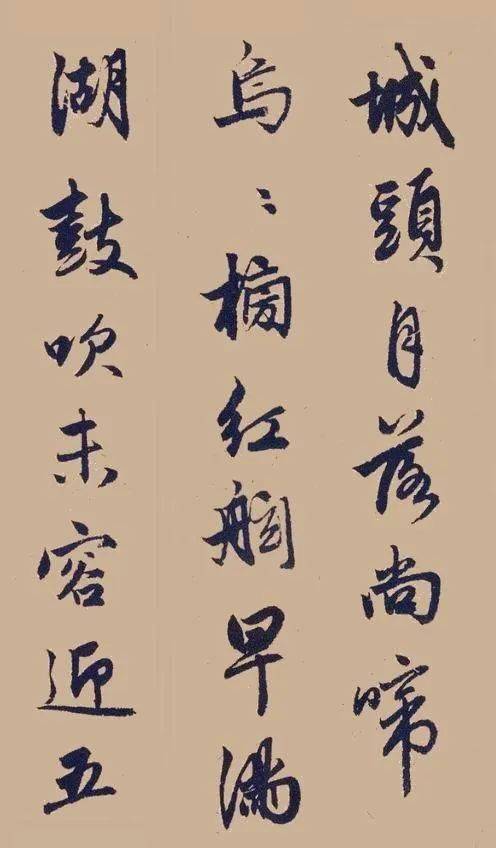 城頭月落尚啼
烏〻紅早滿
湖鼓吹未容迎五